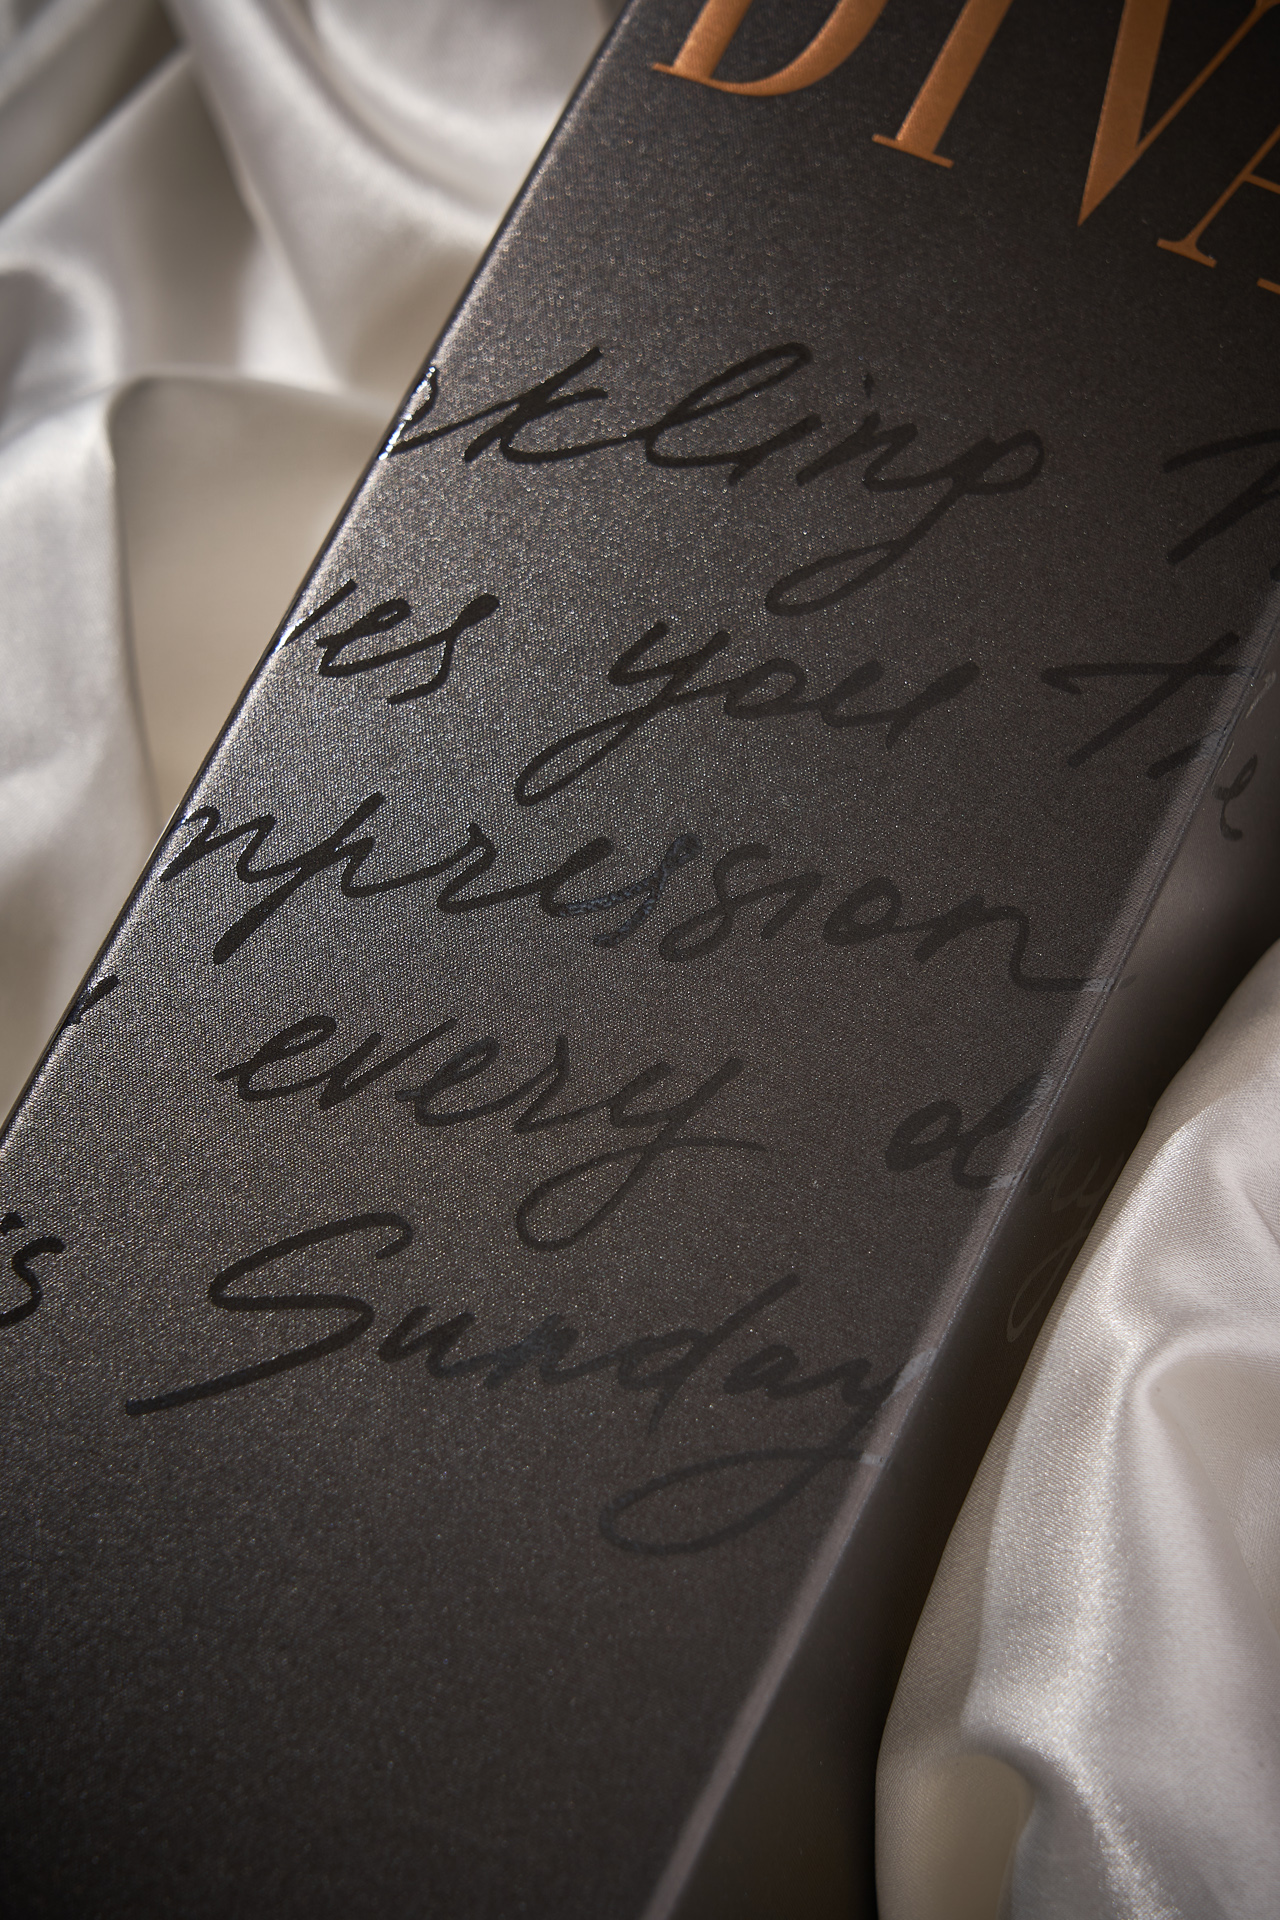 DIV
kling
ves you the
mpression
every day
is Sunday